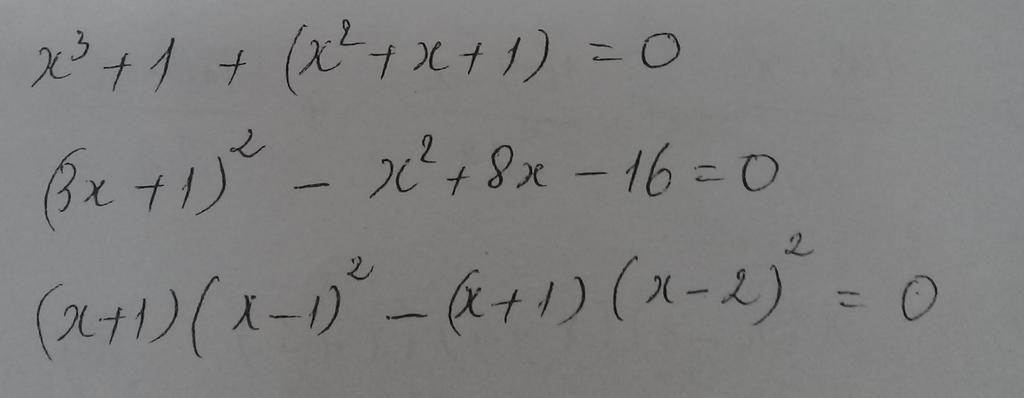 x³ + 1 + (x² + x + 1) = 0
(3x + 1)² - x² + 8x - 16 = 0
(x+1)(x-1)² - (x+1)(x-2)² = 0